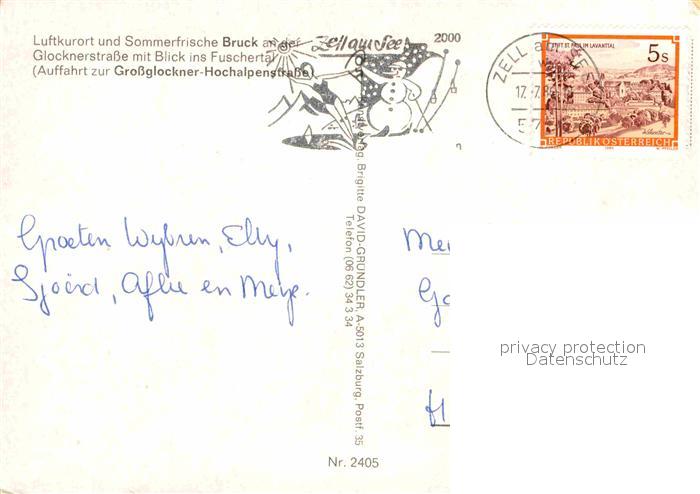 Luftkurort und Sommerfrische Bruck an der
Glocknerstraße mit Blick ins Fuschertal
(Auffahrt zur Großglockner-Hochalpenstraße)
Zell am See
2000
ZELL am SEE
17.-7.8
57
STIFT ST. PAUL IM LAVANTTAL
5s
REPUBLIK ÖSTERREICH
Groeten Wybren, Elly,
Sjoerd, Afke en
Verlag: Brigitte DAVID-GRÜNDLER, A-5013 Salzburg, Postf. 35
Telefon (06 62) 34 3 34
Nr. 2405
Me
Ga
privacy protection
Datenschutz